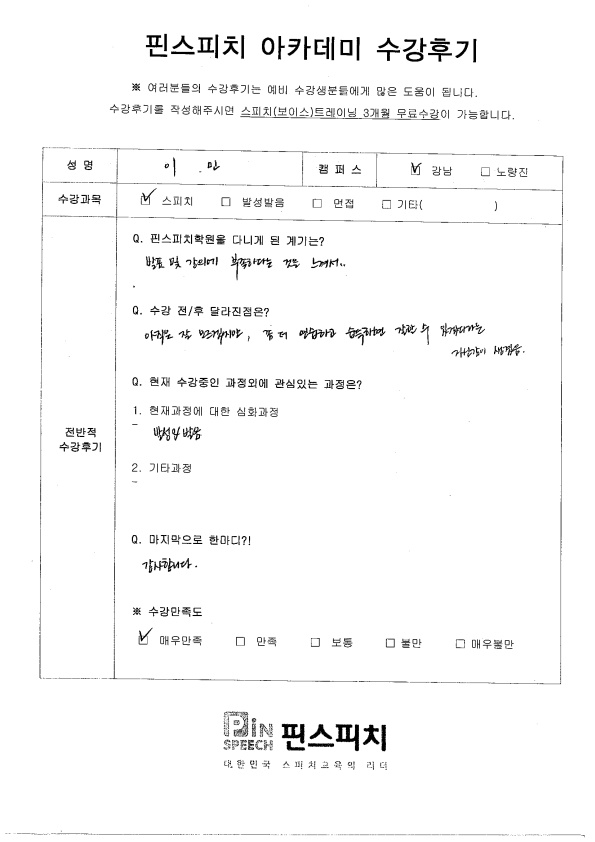 핀스피치 아카데미 수강후기
※ 여러분들의 수강후기는 예비 수강생분들에게 많은 도움이 됩니다.
수강후기를 작성해주시면 스피치(보이스)트레이닝 3개월 무료수강이 가능합니다.
성 명 이 만 캠 퍼 스 ☑ 강남 □ 노량진
수강과목 ☑ 스피치 □ 발성발음 □ 면접 □ 기타( )
전반적
수강후기
Q. 핀스피치학원을 다니게 된 계기는?
발표 및 강의에 부족하다는 것을 느껴서..
Q. 수강 전/후 달라진점은?
아직은 잘 모르겠지만, 좀 더 연습하고 습득하면 잘할 수 있겠다라는
자신감이 생겼음.
Q. 현재 수강중인 과정외에 관심있는 과정은?
1. 현재과정에 대한 심화과정
- 발성 및 발음
2. 기타과정
-
Q. 마지막으로 한마디?!
감사합니다.
※ 수강만족도
☑ 매우만족 □ 만족 □ 보통 □ 불만 □ 매우불만
PiN
SPEECH 핀스피치
대한민국 스피치교육의 리더